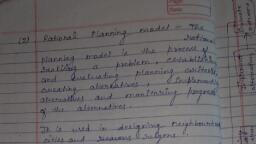 (2) Rational Planning model - The
Rational
Planning model is the process of
realizing a problem, establishing
and evaluating planning criteria,
creating alternatives, implementing
alternatives and monitoring progress
of the alternatives.
It is used in designing neighbourhood
cities and regions